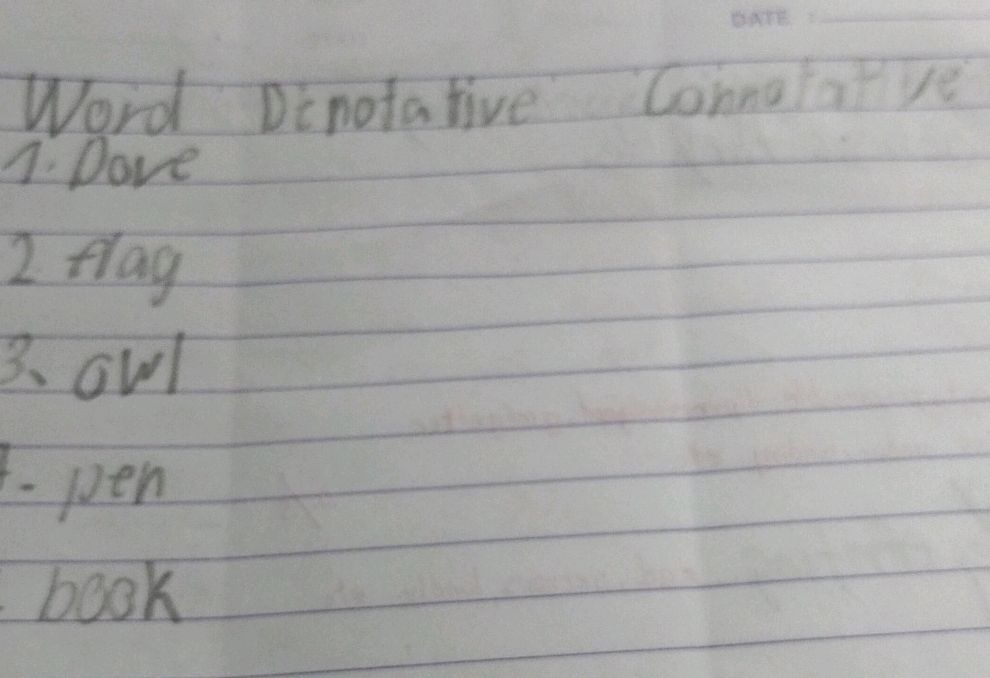 DATE :
Word Denotative Connotative
1. Dove
2 flag
3. owl
- pen
. book